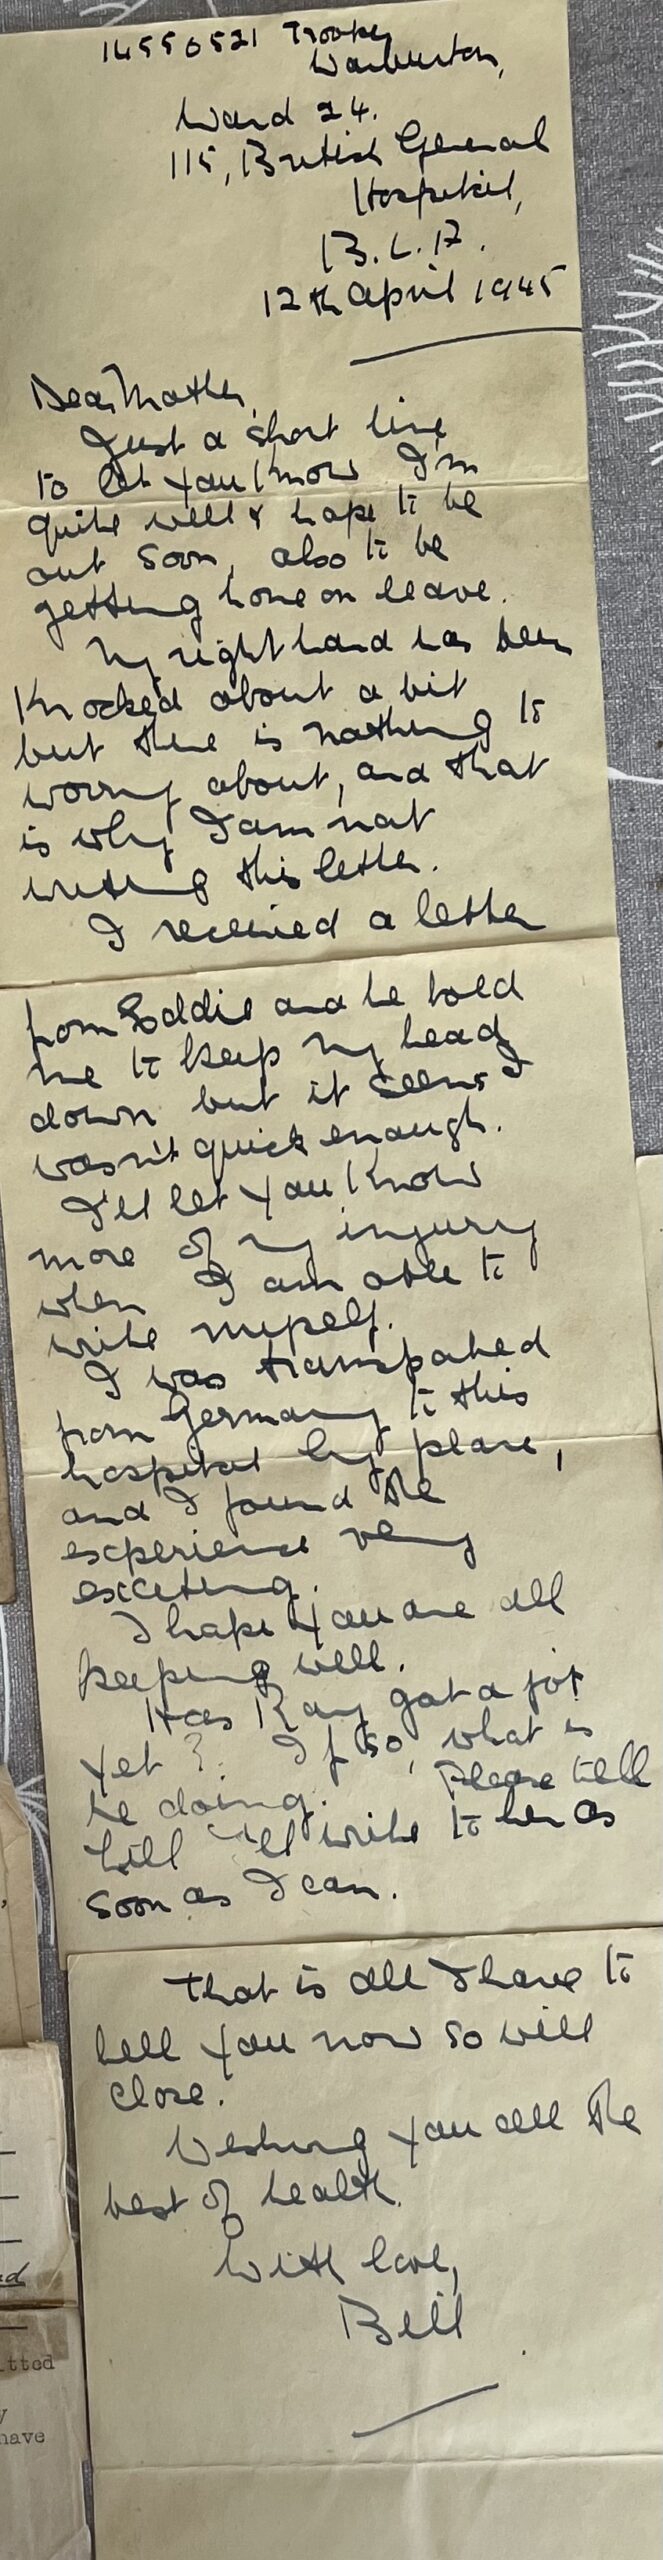 14550521 Trooper
Warburton,
Ward 24.
115, British General
Hospital,
B.L.A.
12th April 1945
Dear Mother,
Just a short line
to let you know I'm
quite well & hope to be
out soon, also to be
getting home on leave.
My right hand has been
knocked about a bit
but there is nothing to
worry about, and that
is why I am not
writing this letter.
I received a letter
from Eddie and he told
me to keep my head
down but it seems I
wasn't quick enough.
I'll let you know
more of my injury
when I am able to
write myself.
I was transported
from Germany to this
hospital by plane,
and I found the
experience very
exciting.
I hope you are all
keeping well.
Has Ray got a job
yet? If so, what is
he doing. Please tell
Lill I'll write to her as
soon as I can.
That is all I have to
tell you now so will
close.
Wishing you all the
best of health.
With love,
Bill
itted
y
have